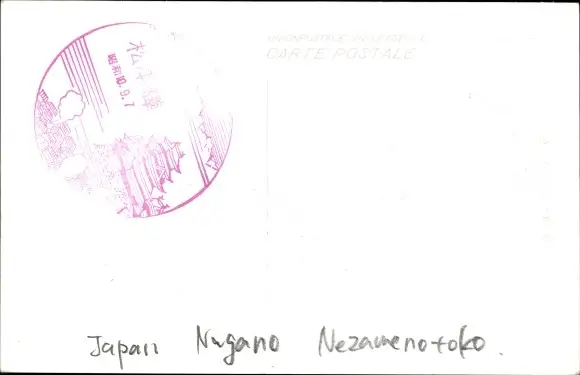 松本驛
昭和10.9.7
UNION POSTALE UNIVERSELLE
CARTE POSTALE
Japan Nagano Nezamenotoko.